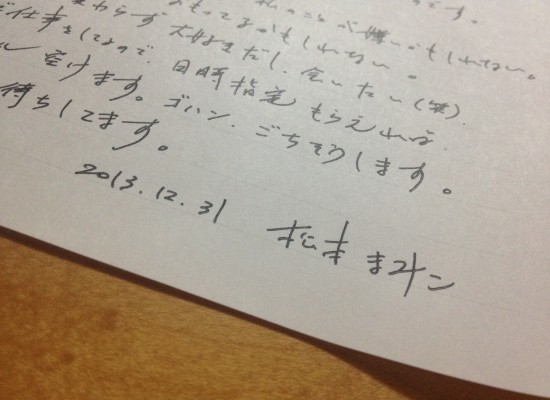 のです。
私のことが嫌いかもしれない。
もってるかもしれない。
わらず 大好きだし、会いたい(笑).
仕事をしてるので、日時指定 もらえれば
ル 空けます。ゴハン、ごちそうします。
待ちしてます。
2013.12.31 松本 まみこ